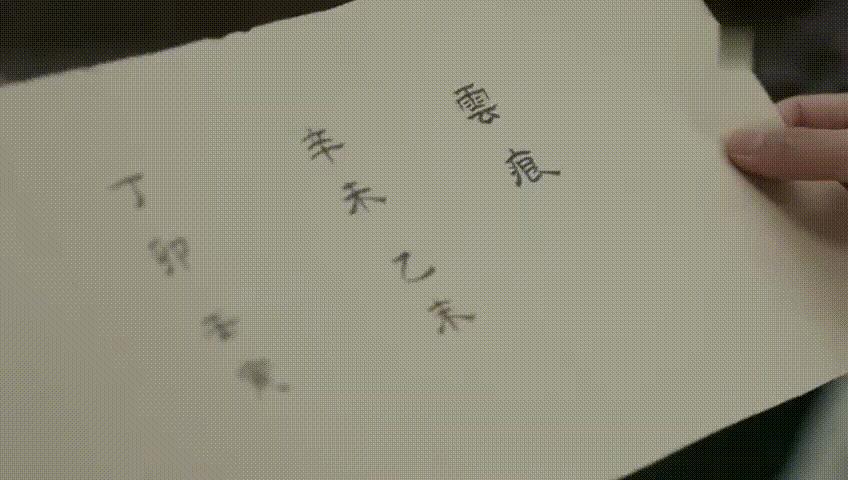 雲痕
辛未 乙未
丁卯 壬寅